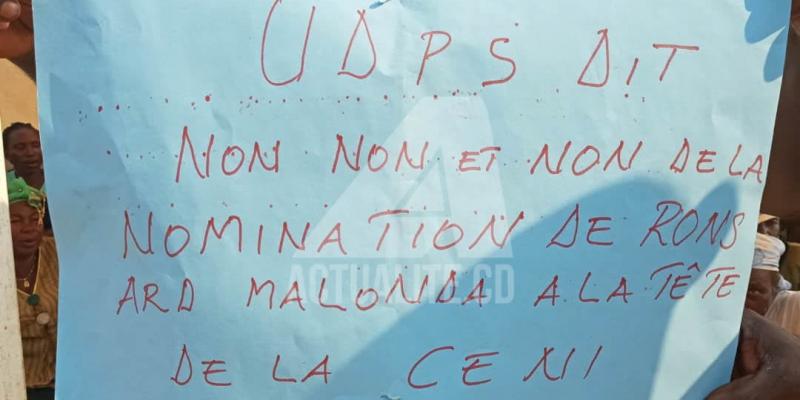 UDPS DIT
NON NON ET NON DE LA
NOMINATION DE RONS
ARD MALONDA A LA TÊTE
DE LA CENI
ACTUALITE.CD